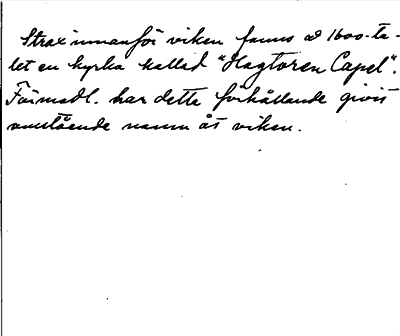 Strax innanför viken fanns å 1600-ta-
let en kyrka kallad "Hagtoren Capel".
Förmodl. har detta förhållande givit
omstående namn åt viken.